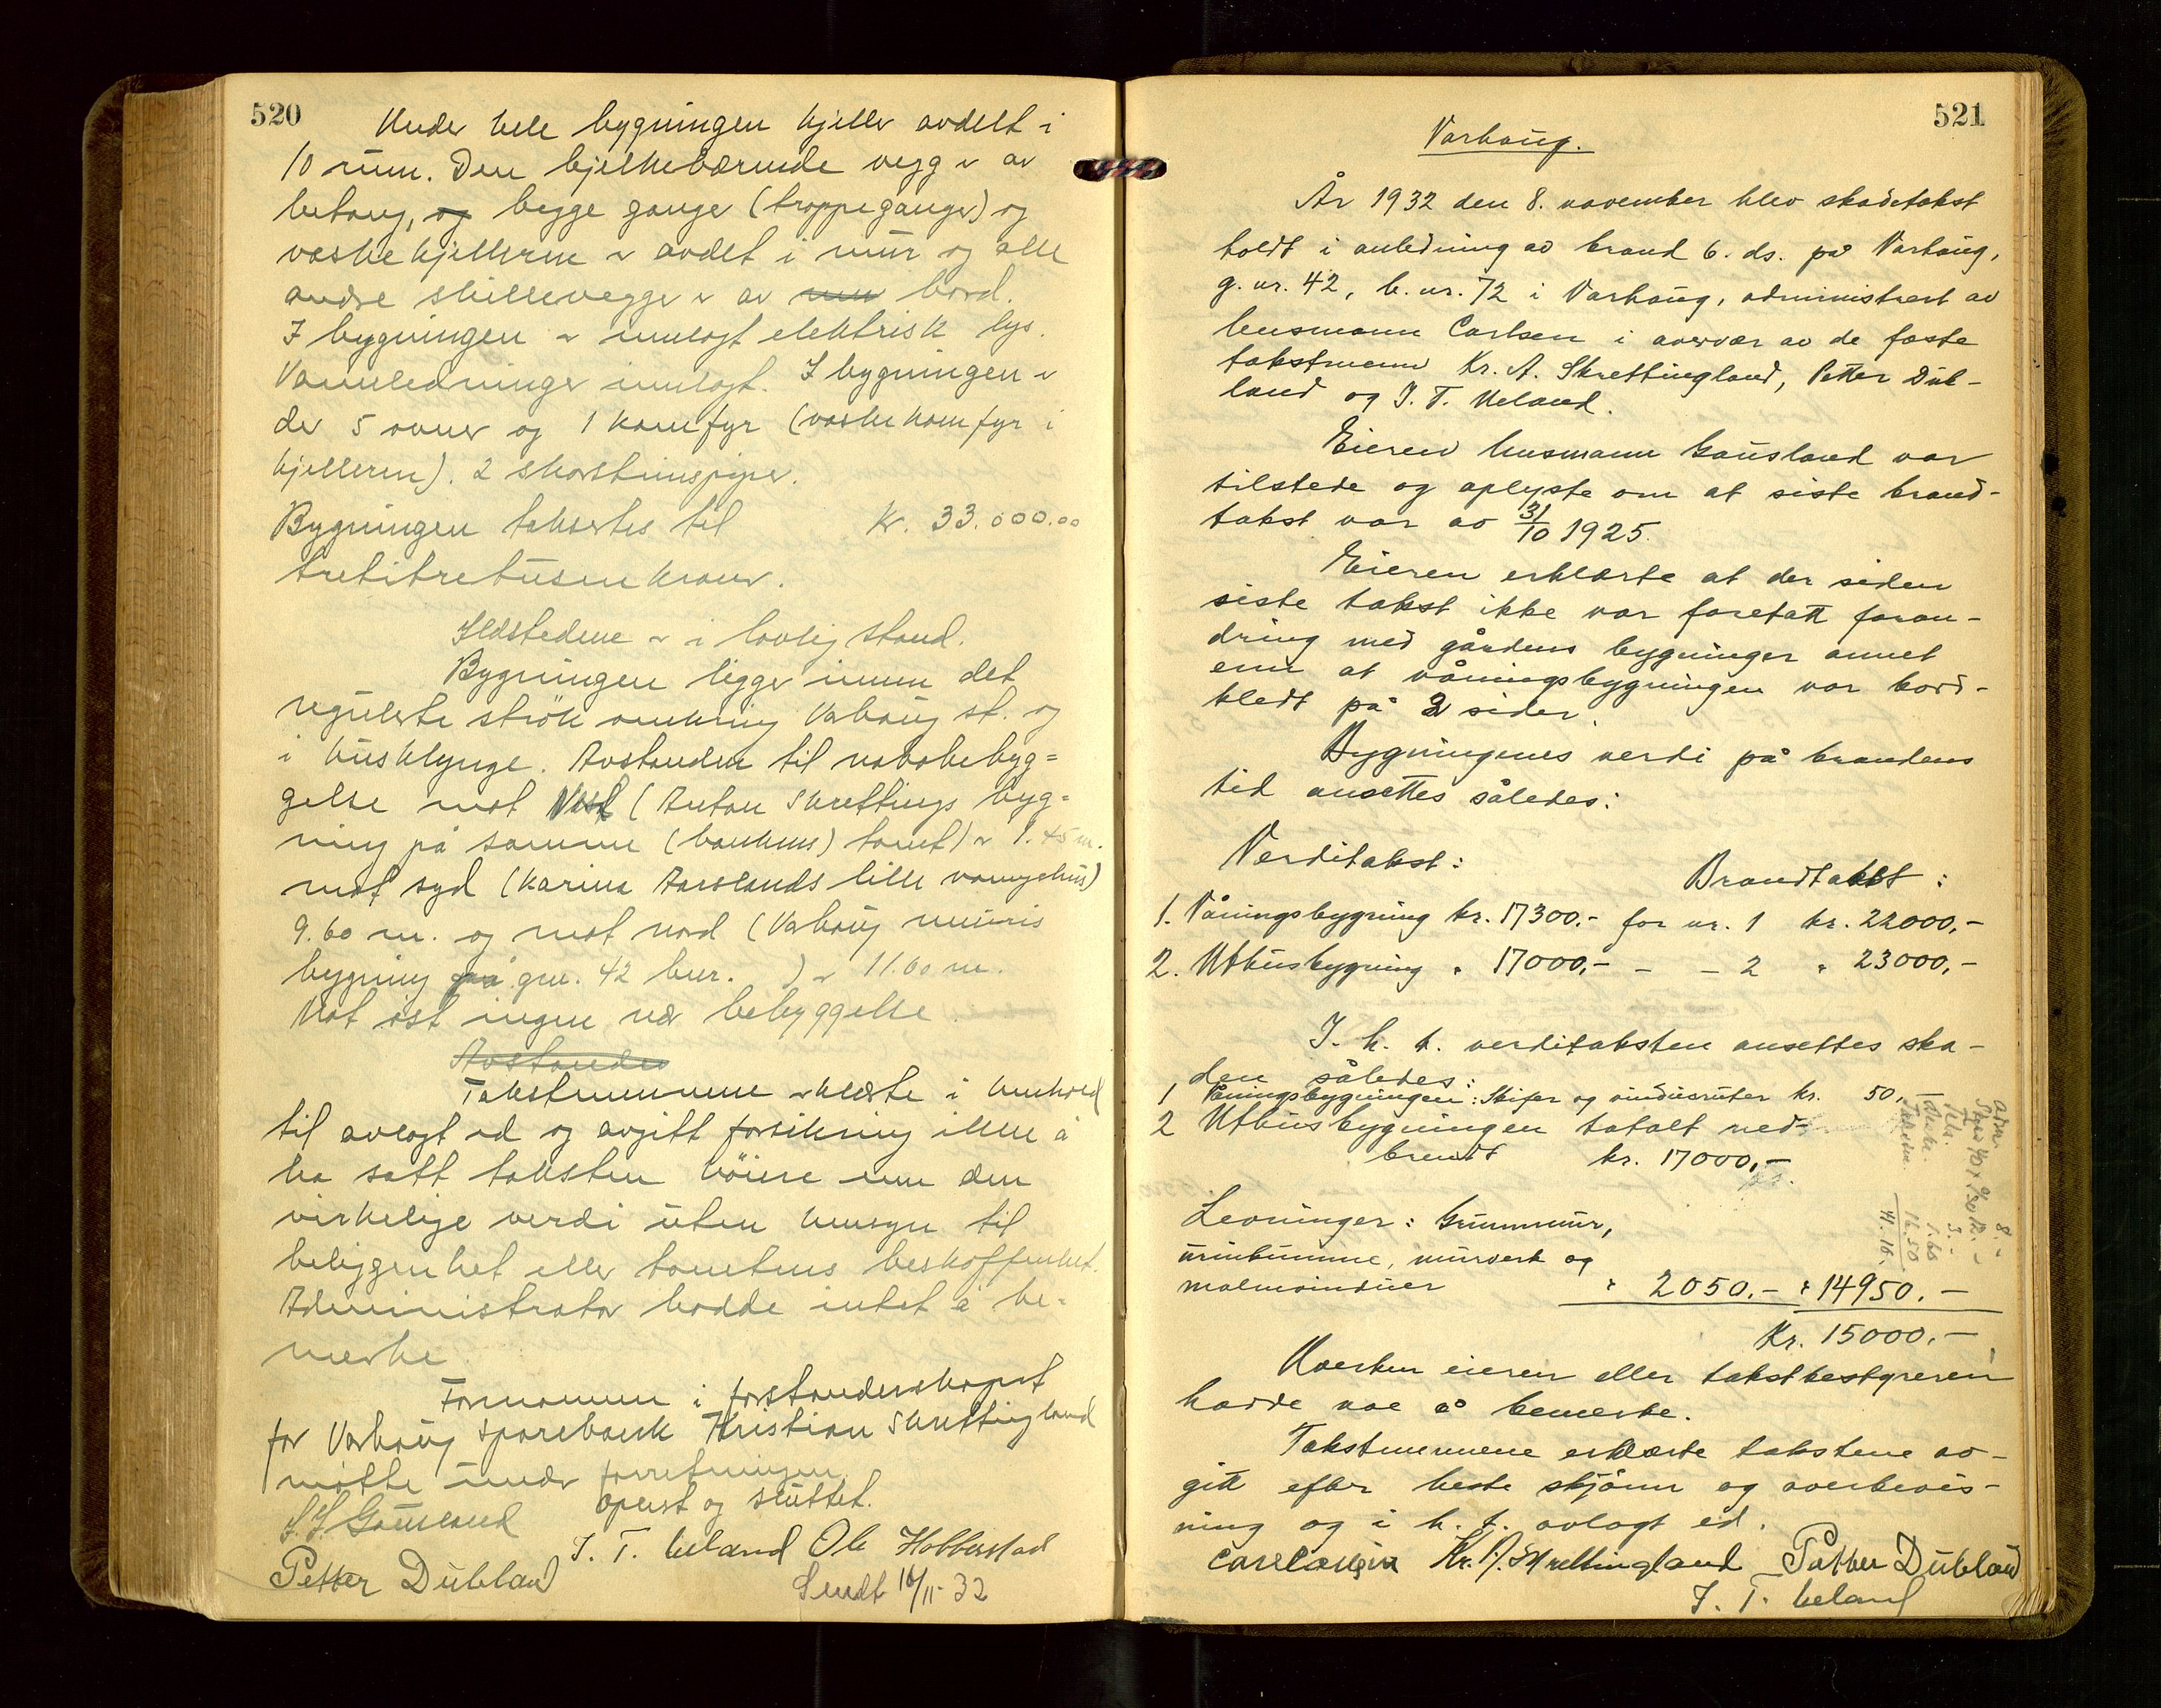 520
Under hele bygningen kjeller avdelt i
10 rum. Den bjelkebærende vegg er av
betong, og begge ganger (trappeganger) og
vaskekjellerne er avdelt i mur og alle
andre skillevegger er av mur bord.
I bygningen er innlagt elektrisk lys.
Vannledninger innlagt. I bygningen er
der 5 ovner og 1 komfyr (vaskekomfyr i
kjelleren). 2 skorstenspiper.
Bygningen takseres til Kr. 33.000.00
tretitretusen kroner.
Ildstedene er i lovlig stand.
Bygningen ligger innen det
regulerte strök omkring Varhaug st. og
i husklynge. Avstanden til nabobebyg=
gelse mot Vest (Anton Skrettings byg=
ning på samme (bankens) tomt) er 1.45 m.
mot syd (Karina Aarslands lille vaaningshus)
9.60 m. og mot nord (Varhaug meieris
bygning på gnr. 42 bnr. ) er 11.60 m.
Mot øst ingen nær bebyggelse.
Avstanden
Takstmennene erklærte i henhold
til avlagt ed og avgitt forsikring ikke å
ha satt taksten höiere enn den
virkelige verdi uten hensyn til
beliggenhet eller tomtens beskaffenhet.
Administrator hadde intet å be-
merke.
Formannen i forstanderskapet
for Varhaug Sparebank Kristian Skrettingland
møtte under forretningen.
Oplest og sluttet.
Gausland
J. T. Ueland Ole Hobberstad
Petter Dubland
Sendt 16/11-32
521
Varhaug.
År 1932 den 8. november blev skadetakst
holdt i anledning av brand 6. ds. på Varhaug,
g.nr. 42, b.nr. 72 i Varhaug, administrert av
lensmann Carlsen i overvær av de faste
takstmenn Kr. A. Skrettingland, Petter Dub-
land og J. T. Ueland.
Eieren lensmann Gausland var
tilstede og oplyste om at siste brand-
takst var av 31/10 1925.
Eieren erklærte at der siden
siste takst ikke var foretatt foran-
dring med gårdens bygninger annet
enn at våningsbygningen var bord-
kledt på 2 sider.
Bygningenes verdi på brandens
tid ansettes således:
Verditakst: Brandtakst:
1. Våningsbygning kr. 17300.- for nr. 1 kr. 22000,-
2. Uthusbygning " 17000,- - - 2 " 23000,-
I. h. t. verditaksten ansettes ska-
den således:
1 Våningsbygningen: Skifer og vindusruter kr. 50,-
2 Uthusbygningen totalt ned-
brendt kr. 17000,-
Levninger: Grunnmur,
urinkumme, murverk og
malmvinduer " 2050.- " 14950.-
Kr. 15000.-
Hverken eieren eller takstbestyreren
hadde noe å bemerke.
Takstmennene erklærte takstene av-
gitt efter beste skjønn og overbevis-
ning og i h. t. avlagt ed.
Carl Carlsen Kr. A. Skrettingland Petter Dubland
J. T. Ueland